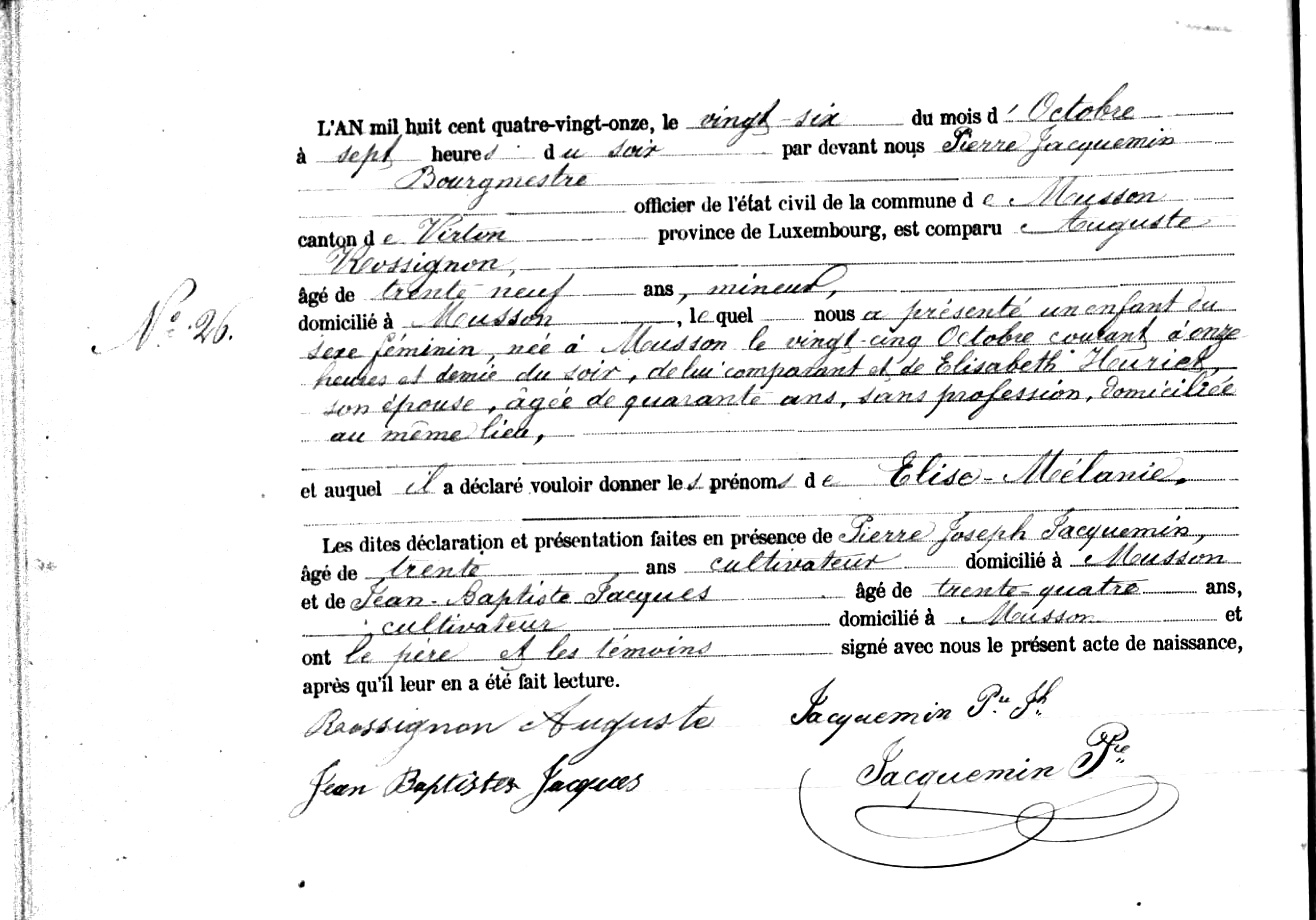 L'AN mil huit cent quatre-vingt-onze, le vingt-six du mois d' Octobre
à sept heures du soir par devant nous Pierre Jacquemin
Bourgmestre
officier de l'état civil de la commune de Musson
canton de Virton province de Luxembourg, est comparu Auguste
Rossignon,
âgé de trente neuf ans, mineur,
domicilié à Musson, lequel nous a présenté un enfant du
N° 26.
sexe féminin, née à Musson le vingt-cinq Octobre courant à onze
heures et demie du soir, de lui comparant et de Elisabeth Henriet,
son épouse, âgée de quarante ans, sans profession, domiciliée
au même lieu,
et auquel il a déclaré vouloir donner les prénoms de Elise-Mélanie.
Les dites déclaration et présentation faites en présence de Pierre Joseph Jacquemin,
âgé de trente ans cultivateur domicilié à Musson
et de Jean-Baptiste Jacques âgé de trente-quatre ans,
cultivateur domicilié à Musson et
ont le père et les témoins signé avec nous le présent acte de naissance,
après qu'il leur en a été fait lecture.
Rossignon Auguste Jacquemin Pre Jh.
Jean Baptiste Jacques Jacquemin Pre